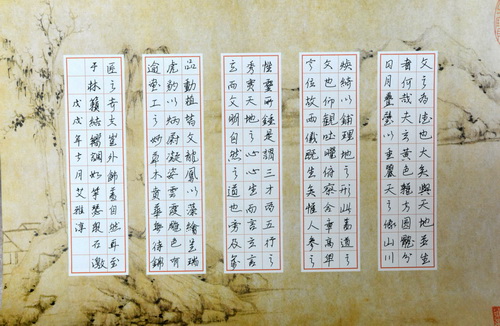 文之為德也大矣與天地並生
者何哉夫玄黃色雜方圓體分
日月疊璧以垂麗天之象山川
煥綺以鋪理地之形此蓋道之
文也仰觀吐曜俯察含章高卑
定位故兩儀既生矣惟人參之
性靈所鍾是謂三才為五行之
秀實天地之心心生而言立言
立而文明自然之道也旁及萬
品動植皆文龍鳳以藻繪呈瑞
虎豹以炳蔚凝姿雲霞雕色有
逾畫工之妙草木賁華無待錦
匠之奇夫豈外飾蓋自然耳至
于林籟結響調如竽瑟泉石激
戊戌年七月艾雅淳